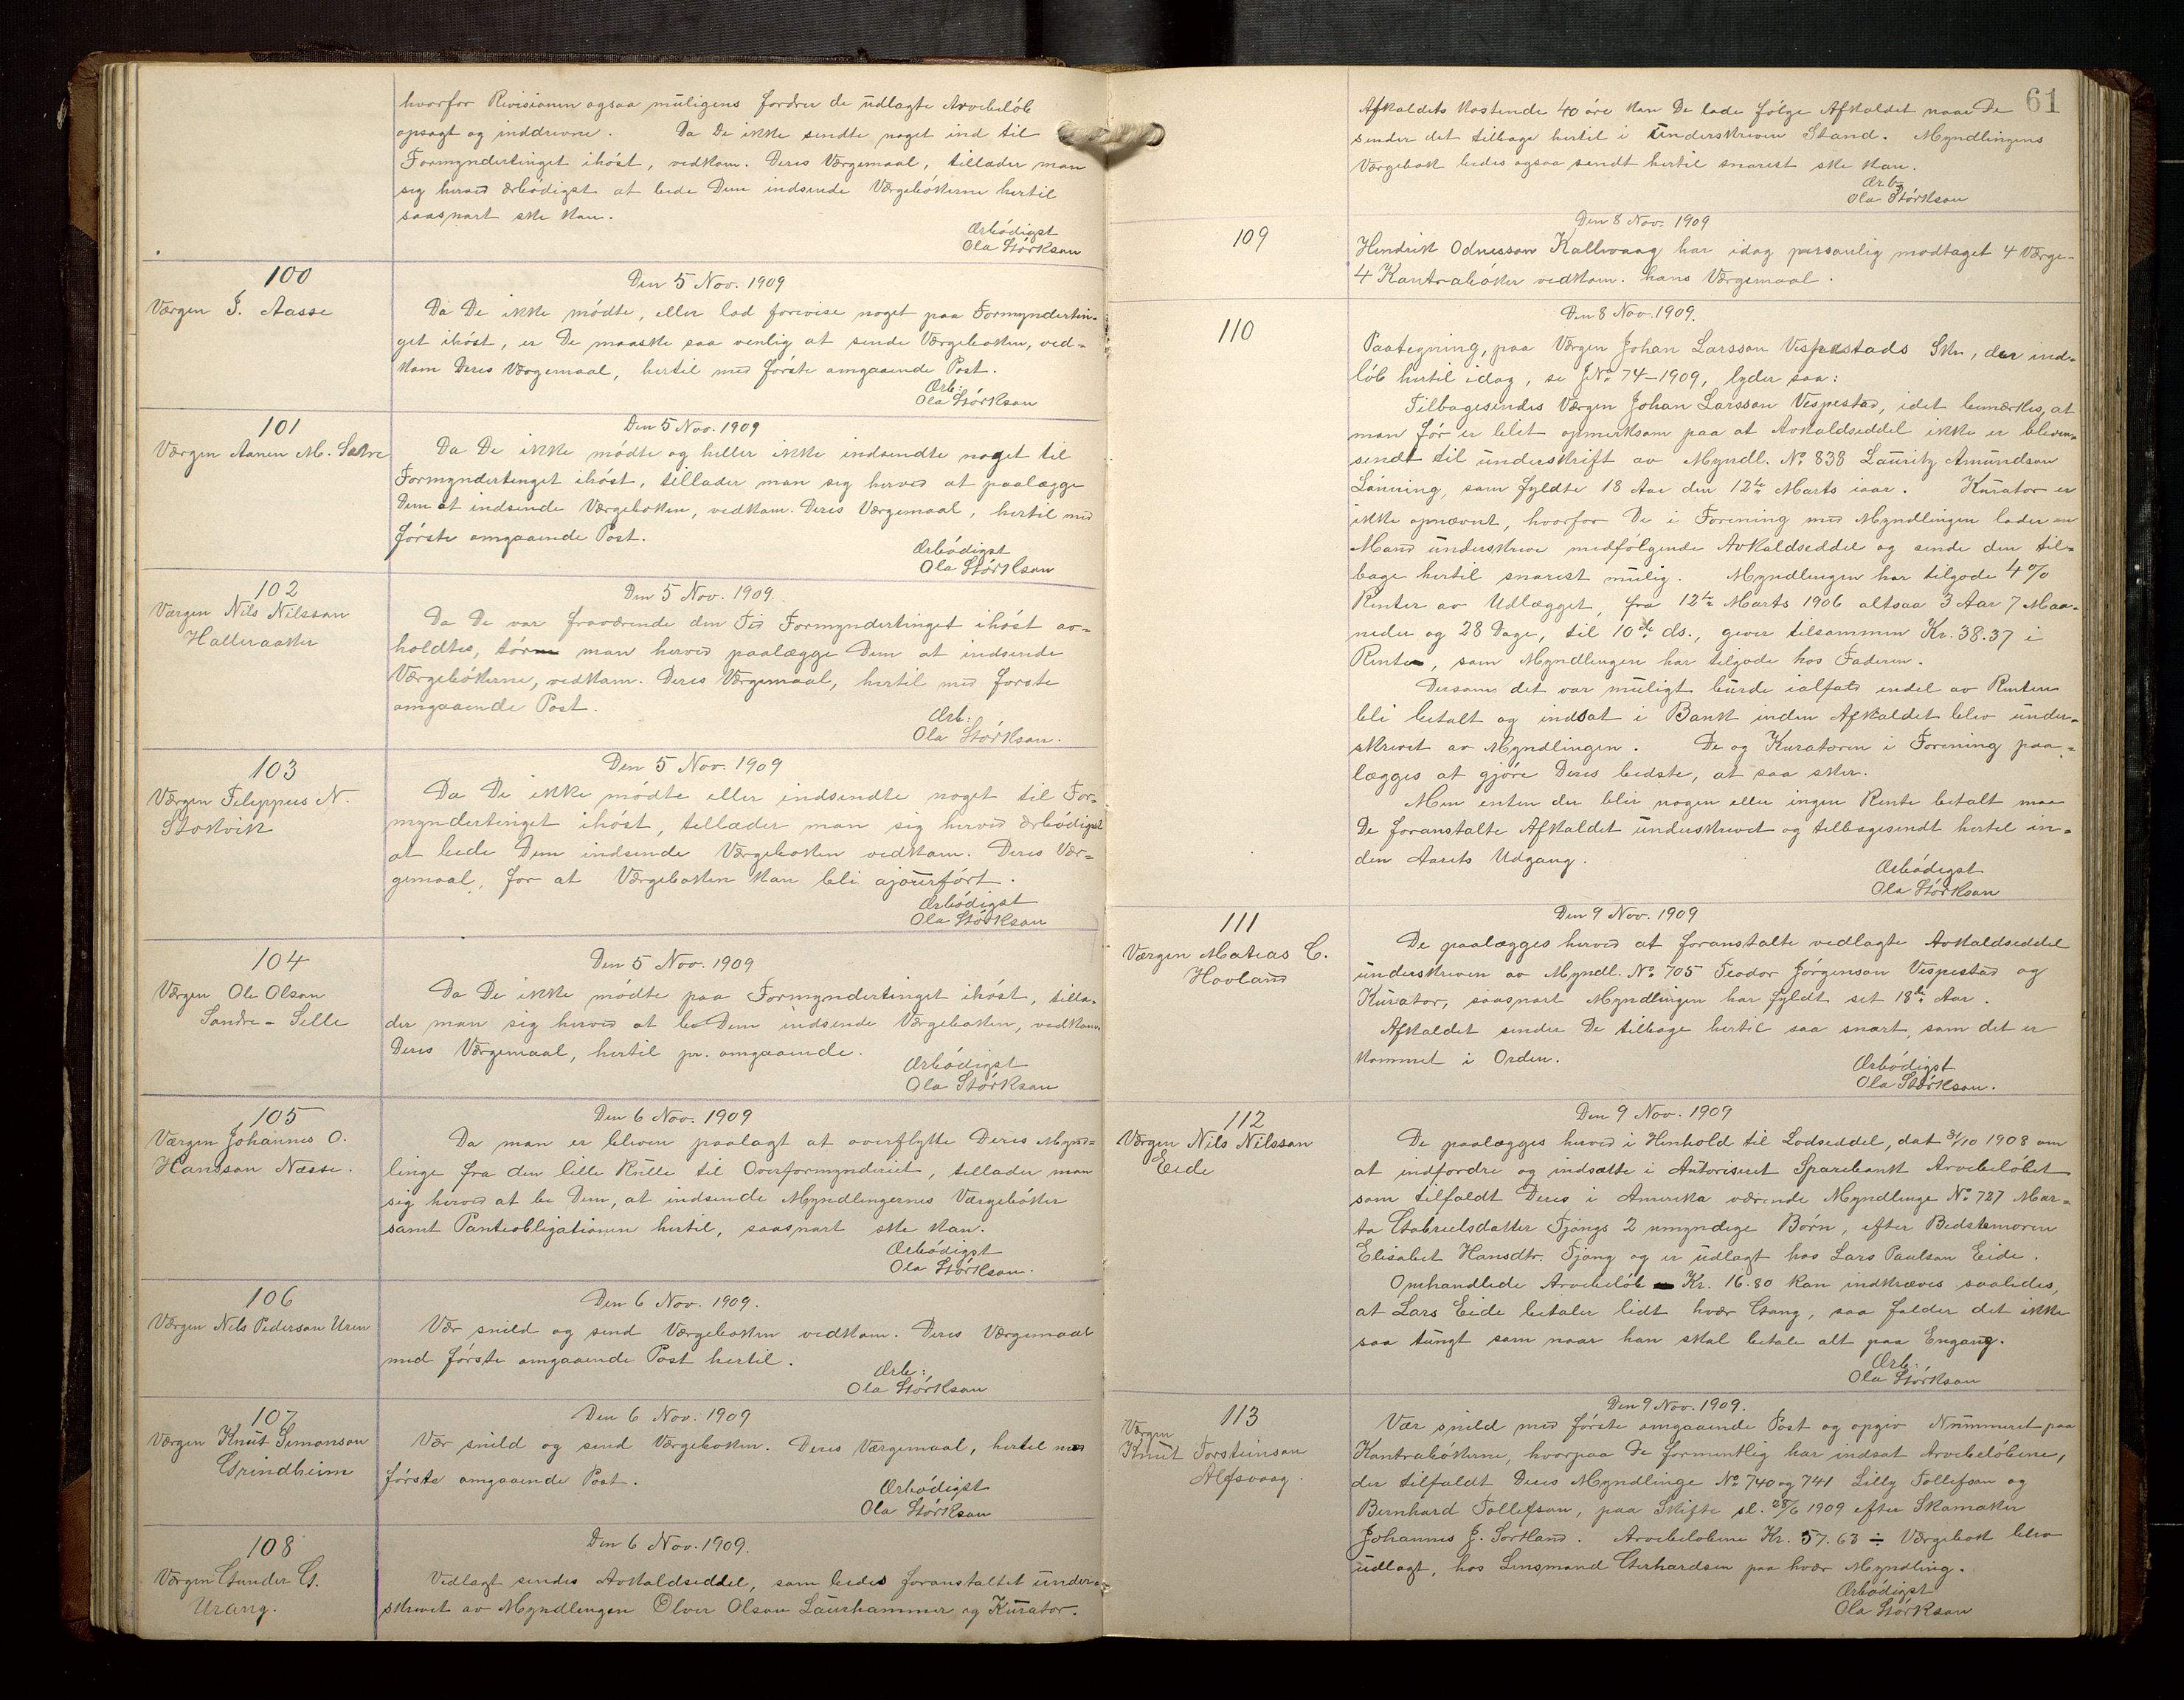 hvorfor Revisionen ogsaa muligens fordrer de udlagte Arvebeløb
opsagt og inddrevne. Da De ikke sendte noget ind til
Formyndertinget ihøst, vedkom. Deres Værgemaal, tillader man
sig herved ærbødigst at bede Dem indsende Værgebøkerne hertil
saasnart ske kan.
Ærbødigst
Ola Størkson
100
Værgen J. Aasse
Den 5 Nov. 1909
Da De ikke mødte, eller lod forevise noget paa Formyndertin-
get ihøst, er De maaske saa venlig at sende Værgeboken, ved-
kom Deres Værgemaal, hertil med første omgaaende Post.
Ærb:
Ola Størkson
101
Værgen Aanen M. Sakre
Den 5 Nov. 1909
Da De ikke mødte og heller ikke indsendte noget til
Formyndertinget ihøst, tillader man sig herved at paalægge
Dem at indsende Værgeboken, vedkom. Deres Værgemaal, hertil med
første omgaaende Post.
Ærbødigst
Ola Størkson
102
Værgen Nils Nilsson
Halleraaker
Den 5 Nov. 1909.
Da De var fraværende den Tid Formyndertinget ihøst av-
holdtes, tør man herved paalægge Dem at indsende
Værgebøkerne, vedkom. Deres Værgemaal, hertil med første
omgaaende Post.
Ærb:
Ola Størkson.
103
Værgen Filippus N.
Stokvik
Den 5 Nov. 1909
Da De ikke mødte eller indsendte noget til For-
myndertinget ihøst, tillader man sig herved ærbødigst
at bede Dem indsende Værgeboken vedkom. Deres Vær-
gemaal, for at Værgeboken kan bli ajourført.
Ærbødigst
Ola Størkson
104
Værgen Ole Olson
Søndre-Selle
Den 5 Nov. 1909
Da De ikke mødte paa Formyndertinget ihøst, tilla-
der man sig herved at be Dem indsende Værgeboken, vedkom
Deres Værgemaal, hertil pr. omgaaende.
Ærbødigst
Ola Størkson
105
Værgen Johannes O.
Hansson Næsse.
Den 6 Nov. 1909
Da man er bleven paalagt at overflytte Deres Mynd-
linge fra den lille Rulle til Overformynderiet, tillader man
sig herved at be Dem, at indsende Myndlingernes Værgebøker
samt Panteobligationen hertil, saasnart ske kan.
Ærbødigst
Ola Størkson.
106
Værgen Nils Pederson Uren
Den 6 Nov. 1909.
Vær snild og send Værgeboken vedkom. Deres Værgemaal
med første omgaaende Post hertil.
Ærb:
Ola Størkson
107
Værgen Knut Simonson
Grindheim
Den 6 Nov. 1909
Vær snild og send Værgeboken. Deres Værgemaal, hertil med
første omgaaende Post.
Ærbødigst
Ola Størkson
108
Værgen Gunder G.
Urang.
Den 6 Nov. 1909.
Vedlagt sendes Avkaldseddel, som bedes foranstaltet under-
skrevet av Myndlingen Elver Olson Laurhammer og Kurator.
61
Afkaldets kostende 40 øre kan De lade følge Afkaldet naar De
sender det tilbage hertil i underskreven Stand. Myndlingens
Værgebok bedes ogsaa sendt hertil snarest ske kan.
Ærb
Ola Størkson
109
Den 8 Nov. 1909
Hendrik Odnesson Kallevaag har idag personlig modtaget 4 Værge-
4 Kontrabøker vedkom. hans Værgemaal.
110
Den 8 Nov. 1909.
Paategning, paa Værgen Johan Larsson Vespestads Skr, der ind-
løb hertil idag, se JNo 74-1909, lyder saa:
Tilbagesendes Værgen Johan Larsson Vespestad, idet bemærkes, at
man før er blit opmerksom paa at Avkaldseddel ikke er bleven
sendt til underskrift av Myndl. No 838 Lauritz Amundson
Lønning, som fyldte 18 Aar den 12te Marts iaar. Kurator er
ikke opnævnt, hvorfor De i Forening med Myndlingen lader en
Mand underskrive medfølgende Avkaldseddel og sende den til-
bage hertil snarest mulig. Myndlingen har tilgode 4%
Renter av Udlægget, fra 12te Marts 1906 altsaa 3 Aar 7 Maa-
neder og 28 Dage, til 10de ds., giver tilsammen Kr. 38.37 i
Rente, som Myndlingen har tilgode hos Faderen.
Dersom det var muligt burde ialfald endel av Renten
bli betalt og indsat i Bank inden Afkaldet blev under-
skrevet av Myndlingen. De og Kuratoren i Forening paa-
lægges at gjøre Deres bedste, at saa sker.
Men enten der blir nogen eller ingen Rente betalt maa
De foranstalte Afkaldet underskrevet og tilbagesendt hertil in-
den Aarets Udgang.
Ærbødigst
Ola Størkson
111
Værgen Matias C.
Hovland
Den 9 Nov. 1909
De paalægges herved at foranstalte vedlagte Avkaldseddel
underskreven av Myndl. No 705 Teodor Jørgenson Vespestad og
Kurator, saasnart Myndlingen har fyldt sit 18de Aar.
Afkaldet sender De tilbage hertil saa snart, som det er
kommet i Orden.
Ærbødigst
Ola Størkson.
112
Værgen Nils Nilsson
Eide
Den 9 Nov. 1909
De paalægges herved i Henhold til Lodseddel, dat 3/10 1908 om
at indfordre og indsætte i Autoriseret Sparebank Arvebeløbet
som tilfaldt Deres i Amerika værende Myndlinge No 727 Mar-
ta Gabrielsdatter Fjongs 2 umyndige Børn, efter Bedstemoren
Elisabet Hansdtr. Fjong og er udlagt hos Lars Paulson Eide.
Omhandlede Arvebeløb Kr. 16.80 kan indkræves saaledes,
at Lars Eide betaler lidt hver Gang, saa falder det ikke
saa tungt som naar han skal betale alt paa Engang.
Ærb:
Ola Størkson
113
Værgen
Knut Torsteinson
Alfsvaag.
Den 9 Nov. 1909.
Vær snild med første omgaaende Post og opgiv Nummeret paa
Kontrabøkerne, hvorpaa De formentlig har indsat Arvebeløbene,
der tilfaldt Deres Myndlinge No 740 og 741 Lilly Tollefson og
Bernhard Tollefson, paa Skifte sl. 28/6 1909 efter Skomaker
Johannes J. Sortland. Arvebeløbene Kr. 57.63 ÷ Værgebok blev
udlagt, hos Lensmand Gerhardsen paa hver Myndling.
Ærbødigst
Ola Størkson